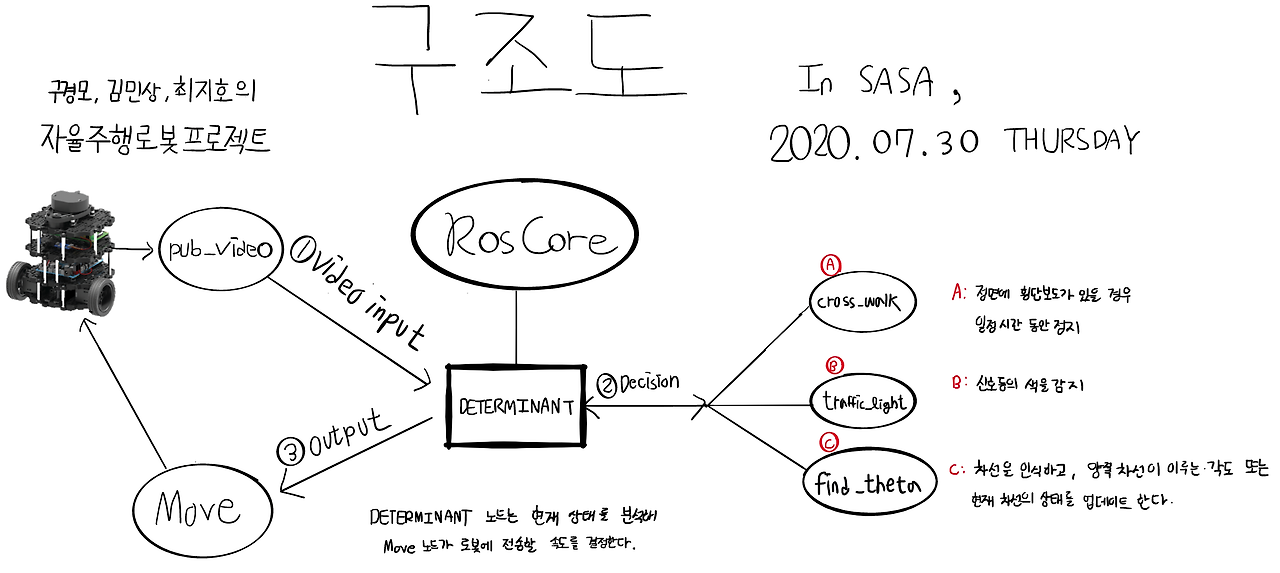 구조도
구경모, 김민상, 최지호의
자율주행로봇프로젝트
In SASA,
2020.07.30 THURSDAY
pub_video
①video input
RosCore
DETERMINANT
②Decision
③output
Move
Ⓐ
cross_walk
Ⓑ
traffic_light
Ⓒ
find_theta
A: 정면에 횡단보도가 있을 경우
일정시간 동안 정지
B: 신호등의 색을 감지
C: 차선을 인식하고, 양쪽 차선이 이루는 각도 또는
현재 차선의 상태를 업데이트 한다.
DETERMINANT 노드는 현재 상태를 분석해
Move 노드가 로봇에 전송할 속도를 결정한다.